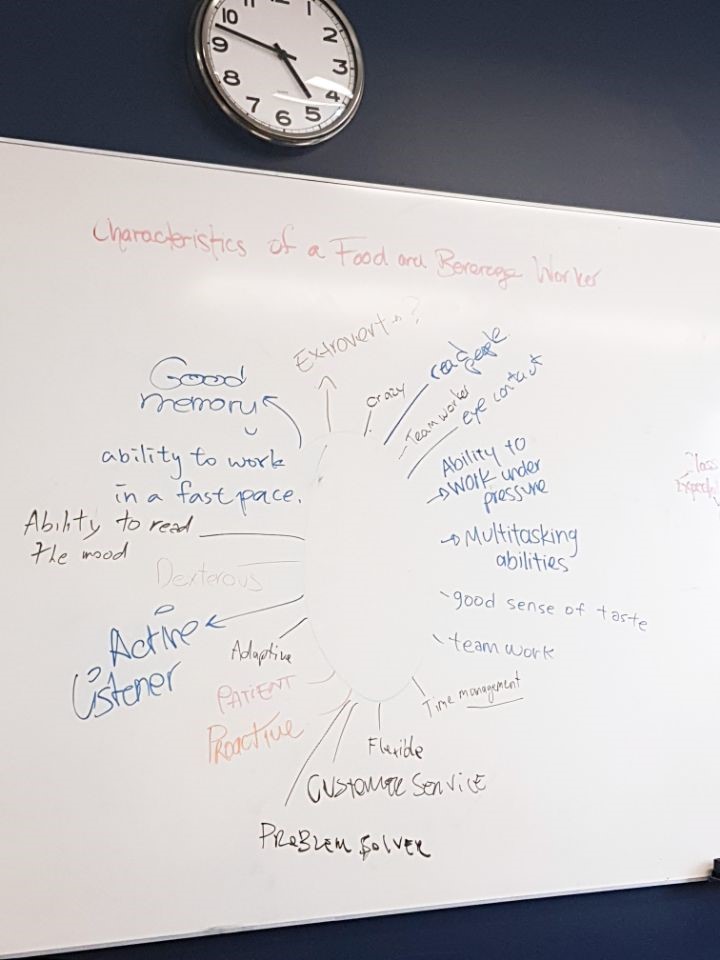 10
1
2
9
3
8
4
7
6
5
Characteristics of a Food and Beverage Worker
Extrovert
?
crazy
read people
Team worker
eye contact
Good
memory
Ability to
work under
pressure
ability to work
in a fast pace.
Ability to read
the mood
Multitasking
abilities
Dexterous
good sense of taste
Active
Listener
team work
Adaptive
PATIENT
Time management
Proactive
Flexible
CUSTOMER SERVICE
PROBLEM SOLVER